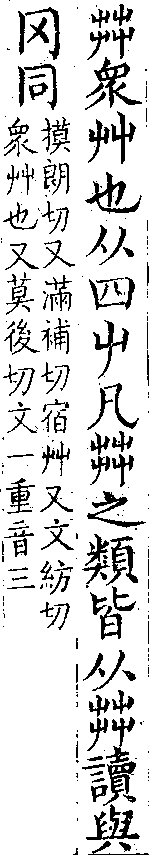 茻眾艸也从四屮凡茻之類皆从茻讀與
冈同
摸朗切又滿補切宿艸又文紡切
眾艸也又莫後切文一重音三